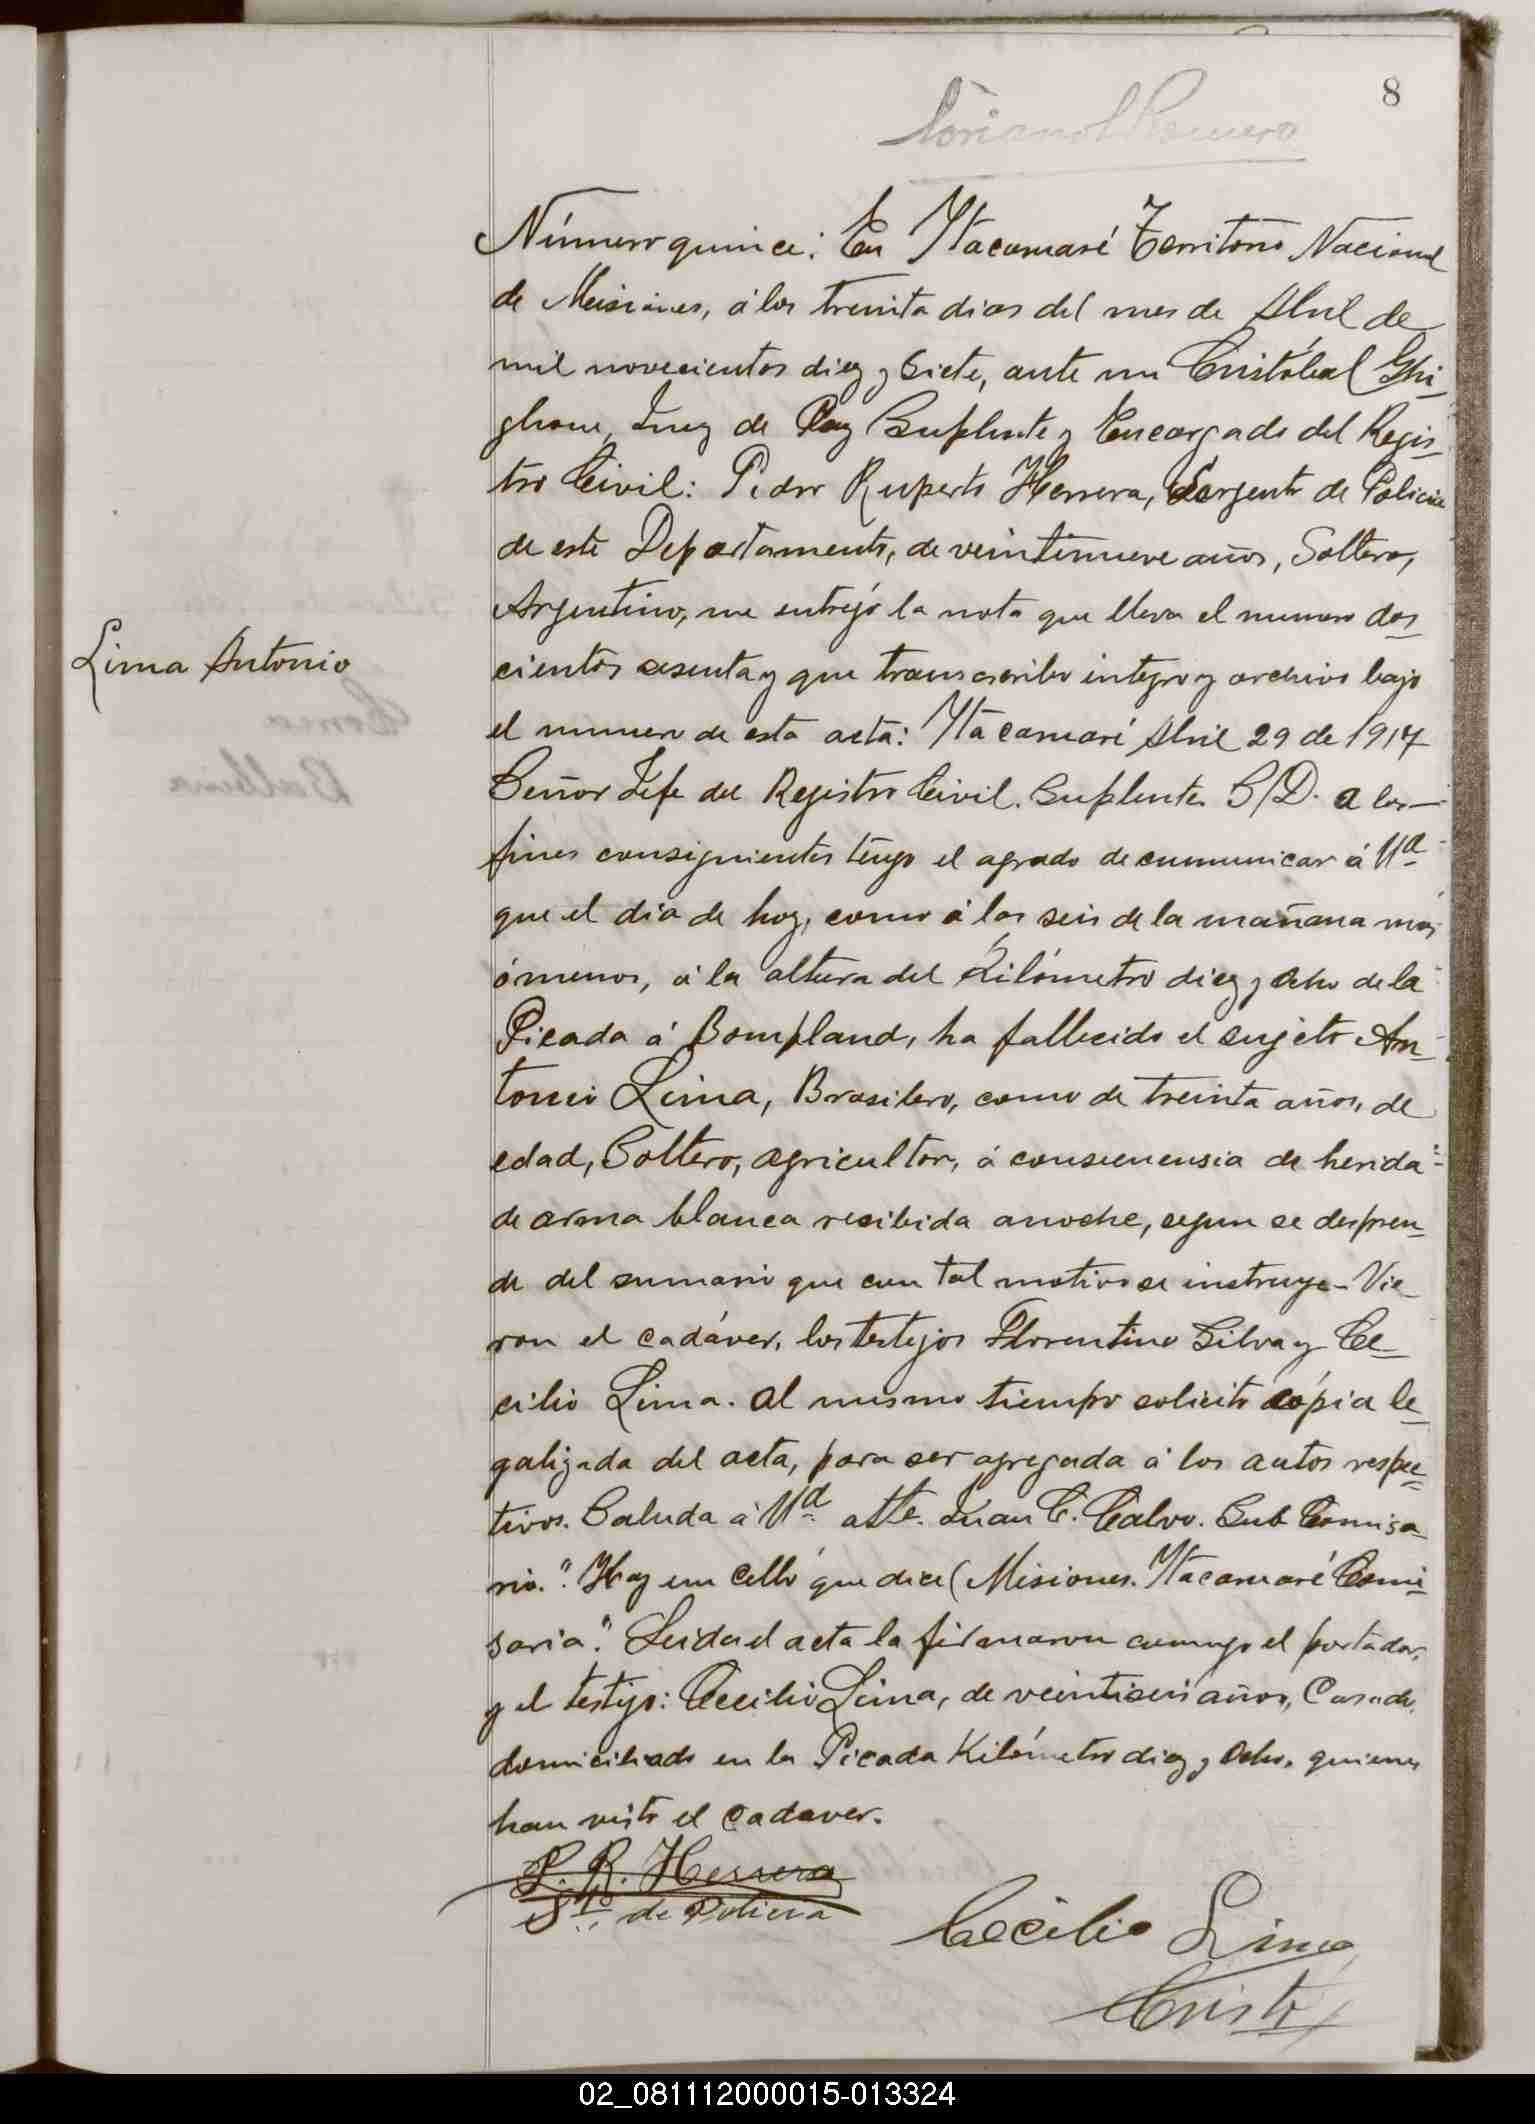 8
Número quince: En Ytacaruaré Territorio Nacional
de Misiones, á los treinta dias del mes de Abril de
mil novecientos diez y siete, ante mi Cristóbal Ghi-
glione, Juez de Paz Suplente y Encargado del Regis-
tro Civil: Pedro Ruperto Herrera, Sargento de Policia
de este Departamento, de veintinueve años, Soltero,
Argentino, me entregó la nota que lleva el numero dos-
cientos sesenta y que transcribo integro y archivo bajo
Lima Antonio
el numero de esta acta: Ytacaruaré Abril 29 de 1917
Señor Jefe del Registro Civil. Suplente. S/D. a los
fines consiguientes tengo el agrado de cumunicar á Ud
que el dia de hoy, como á las seis de la mañana mas
ó menos, á la altura del Kilómetro diez y ocho de la
Picada á Bompland, ha fallecido el sujeto An-
tonio Lima, Brasilero, como de treinta años, de
edad, Soltero, agricultor, á consecuensia de herida
de arma blanca recibida anoche, segun se despren-
de del sumario que con tal motivo se instruye- Vie-
ron el cadáver, los testigos Florentino Silva y Ce-
cilio Lima. Al mismo tiempo solicito cópia le-
galizada del acta, para ser agregada á los autos respec-
tivos. Saluda á Ud atte. Juan C. Calvo. Sub Comisa-
rio.". Hay un Cello que dice (Misiones. Ytacaruaré Comi-
saria". Leida el acta la firmaron cumigo el portador,
y el testigo: Cecilio Lima, de veintiseis años, Casado,
domiciliado en la Picada Kilómetro diez y ocho, quienes
han visto el cadaver.
P. R. Herrera
Sto de Policia
Cecilio Lima
Cristó
02_081112000015-013324